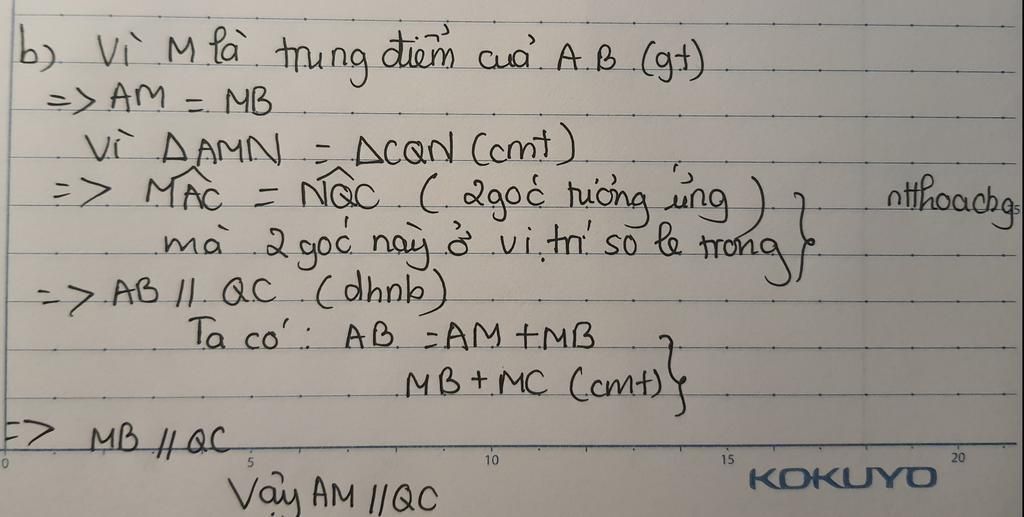 b) Vì M là trung điểm cuả A.B (gt)
=> AM = MB
Vì ΔAMN = ΔCQN (cmt)
=> MAC = NQC ( 2 goć tương ứng )
nthoacbgs
mà 2 goć này ở vị trí so le trong
=> AB // QC (dhnb)
Ta có : AB = AM + MB
MB + MC (cmt)
=> MB // QC
0 5 10 15 20
KOKUYO
Vậy AM // QC